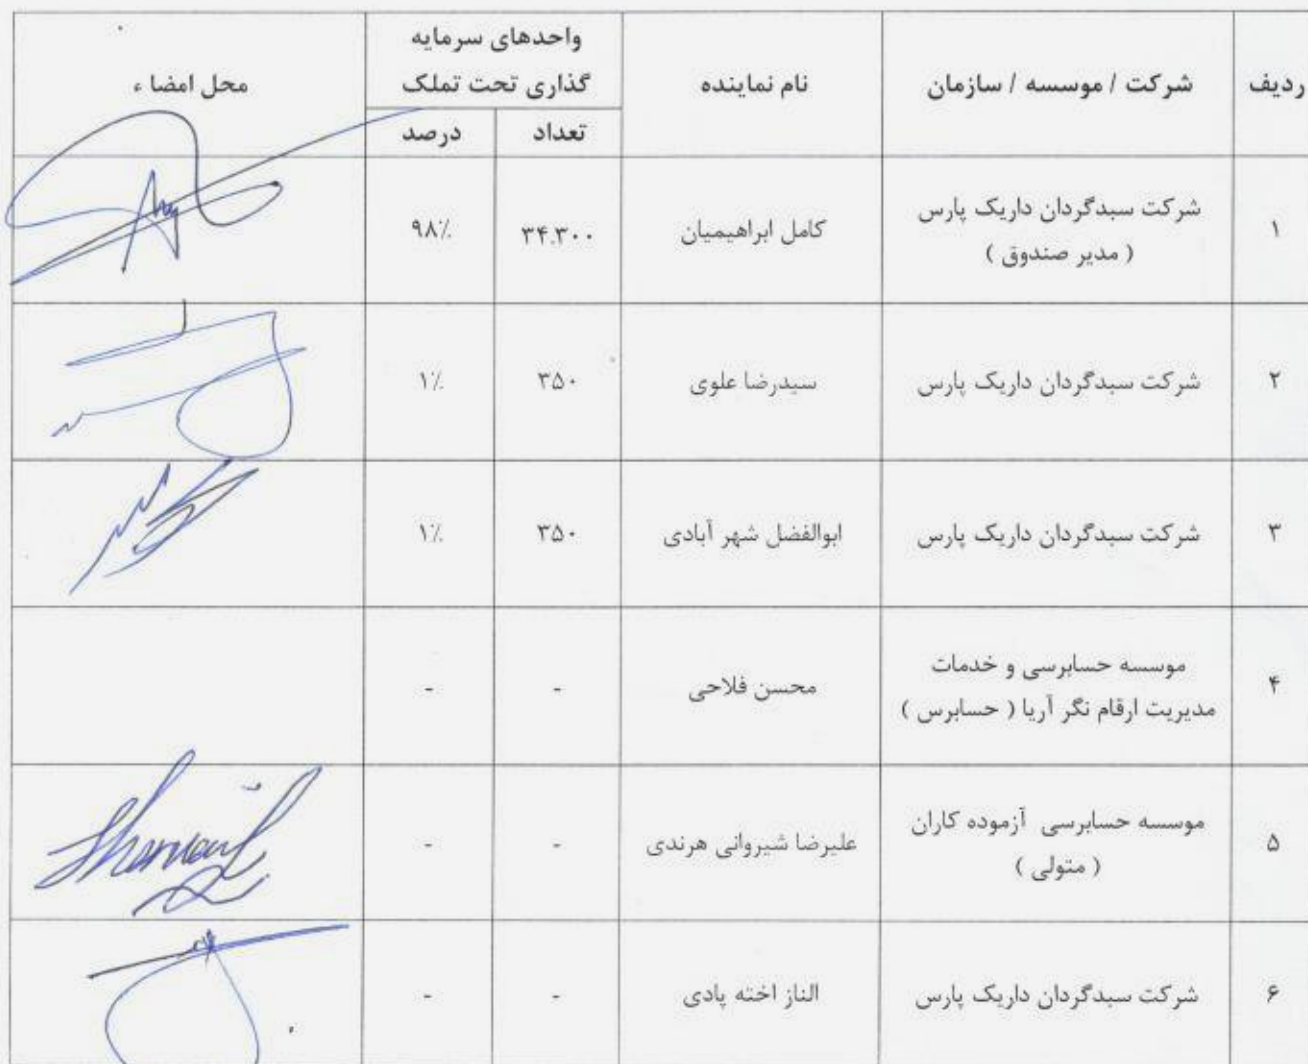 ردیف
شرکت / موسسه / سازمان
نام نماینده
واحدهای سرمایه
گذاری تحت تملک
تعداد
درصد
محل امضاء
۱
شرکت سبدگردان داریک پارس
( مدیر صندوق )
کامل ابراهیمیان
۳۴.۳۰۰
۹۸٪
۲
شرکت سبدگردان داریک پارس
سیدرضا علوی
۳۵۰
۱٪
۳
شرکت سبدگردان داریک پارس
ابوالفضل شهر آبادی
۳۵۰
۱٪
۴
موسسه حسابرسی و خدمات
مدیریت ارقام نگر آریا ( حسابرس )
محسن فلاحی
-
-
۵
موسسه حسابرسی آزموده کاران
( متولی )
علیرضا شیروانی هرندی
-
-
۶
شرکت سبدگردان داریک پارس
الناز اخته پادی
-
-